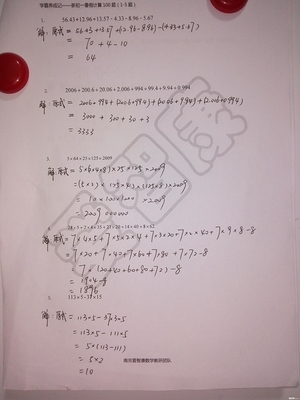 学霸养成记——新初一暑假计算100题(1-5题)
1. 56.43+12.96+13.57-4.33-8.96-5.67
解:原式=56.43+13.57+(12.96-8.96)-(4.33+5.67)
=70+4-10
=64
2. 2006+200.6+20.06+2.006+994+99.4+9.94+0.994
解:原式=2006+994+(200.6+99.4)+(20.06+9.94)+(2.006+0.994)
=3000+300+30+3
=3333
3. 5×64×25×125×2009
解:原式=5×(8×8)×25×125×2009
=10×100×1000×2009
=2009000000
=7×4×5+7×5×2×4+7×3×20+7×2×40+7×9×8-8
=7×20+7×40+7×60+7×80+7×72-8
7×(20+40+60+80+72)-8
=1904-8
=1896
5. 113×5-37×15
解:原式=113×5-37×3×5
=113×5-111×5
=5×(113-111)
=5×2
=10
南京雷智像数学教研团队